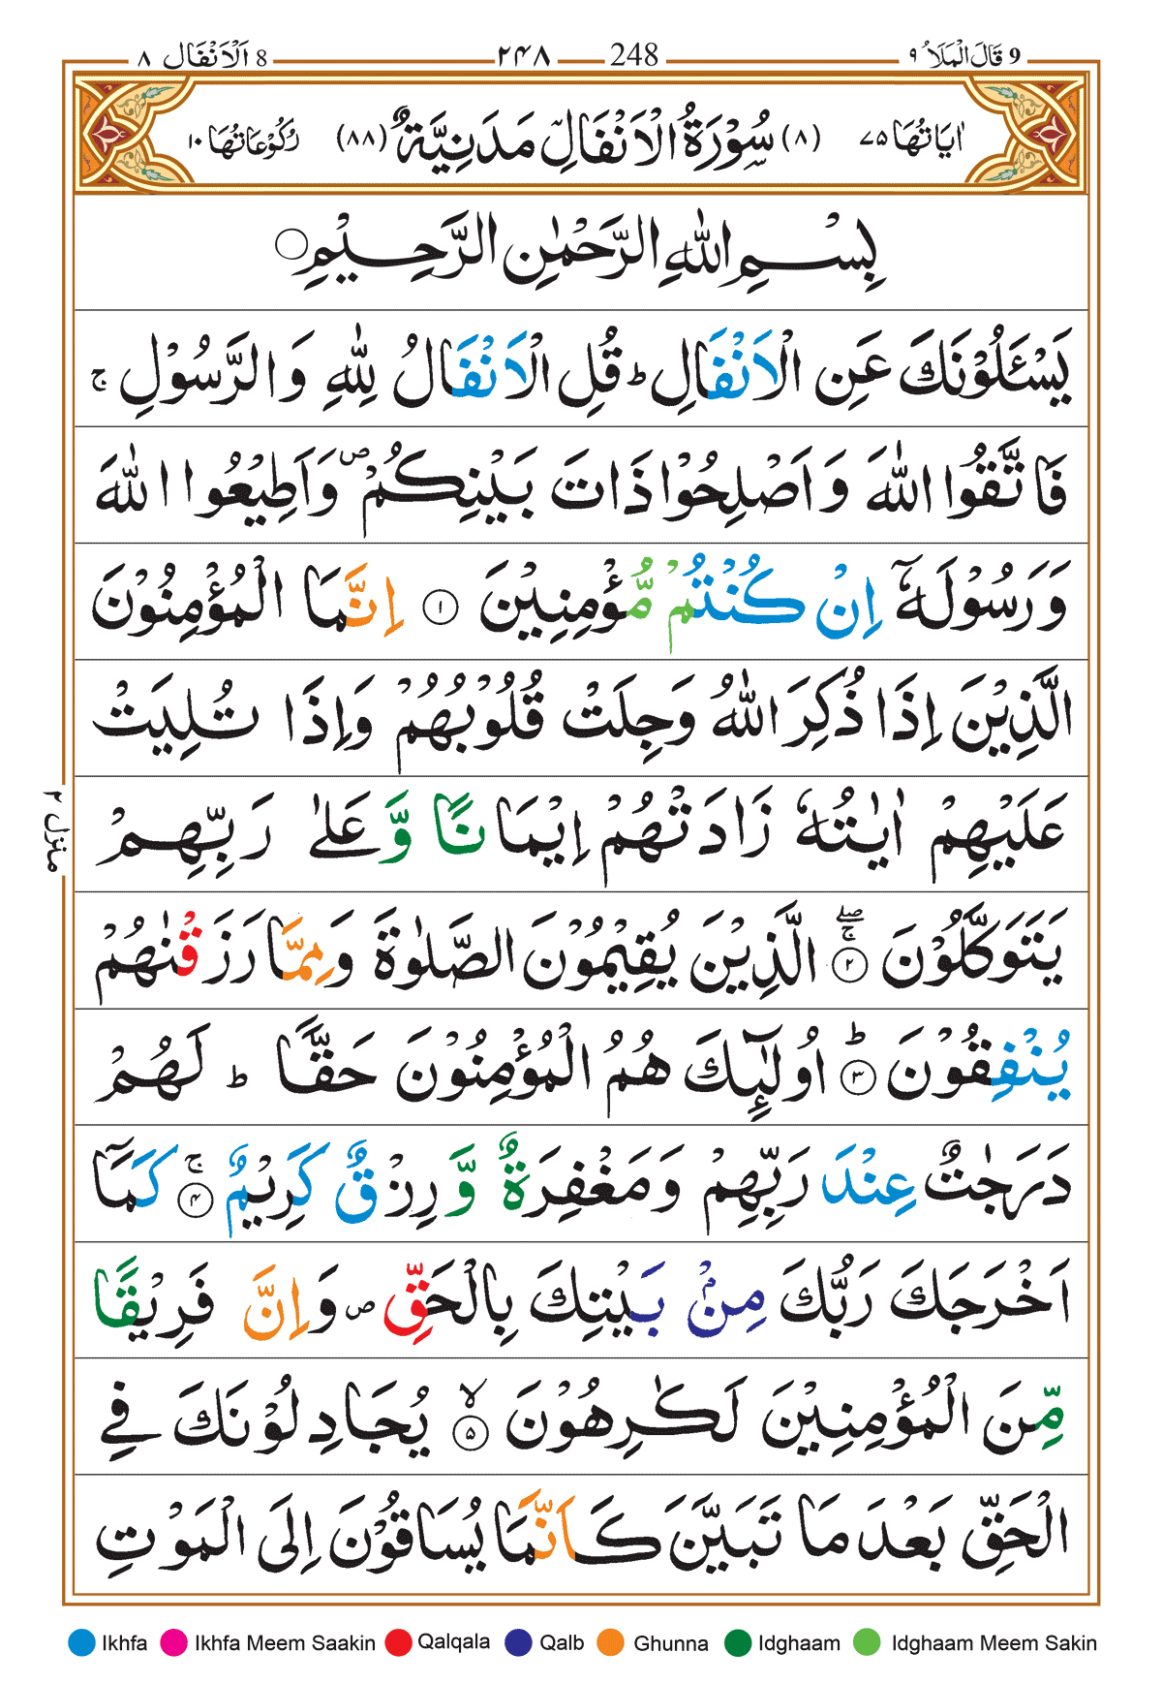 9 قَالَ الْمَلَاُ ٩ 248 ٢٤٨ 8 اَلْاَنْفَال ٨
اٰيَاتُهَا ٧٥ (٨) سُوْرَةُ الْاَنْفَالِ مَدَنِيَّةٌ (٨٨) رُكُوْعَاتُهَا ١٠
بِسْمِ اللّٰهِ الرَّحْمٰنِ الرَّحِيْمِ ○
يَسْـَٔلُوْنَكَ عَنِ الْاَنْفَالِ ؕ قُلِ الْاَنْفَالُ لِلّٰهِ وَالرَّسُوْلِ ۚ
فَاتَّقُوا اللّٰهَ وَاَصْلِحُوْا ذَاتَ بَيْنِكُمْ ۪ وَاَطِيْعُوا اللّٰهَ
وَرَسُوْلَهٗۤ اِنْ كُنْتُمْ مُّؤْمِنِيْنَ ١ اِنَّمَا الْمُؤْمِنُوْنَ
الَّذِيْنَ اِذَا ذُكِرَ اللّٰهُ وَجِلَتْ قُلُوْبُهُمْ وَاِذَا تُلِيَتْ
عَلَيْهِمْ اٰيٰتُهٗ زَادَتْهُمْ اِيْمَانًا وَّعَلٰى رَبِّهِمْ
يَتَوَكَّلُوْنَ ۖۚ ٢ الَّذِيْنَ يُقِيْمُوْنَ الصَّلٰوةَ وَمِمَّا رَزَقْنٰهُمْ
يُنْفِقُوْنَ ؕ ٣ اُولٰٓئِكَ هُمُ الْمُؤْمِنُوْنَ حَقًّا ؕ لَهُمْ
دَرَجٰتٌ عِنْدَ رَبِّهِمْ وَمَغْفِرَةٌ وَّرِزْقٌ كَرِيْمٌ ۚ ٤ كَمَاۤ
اَخْرَجَكَ رَبُّكَ مِنْۢ بَيْتِكَ بِالْحَقِّ ۪ وَاِنَّ فَرِيْقًا
مِّنَ الْمُؤْمِنِيْنَ لَكٰرِهُوْنَ ۙ ٥ يُجَادِلُوْنَكَ فِي
الْحَقِّ بَعْدَ مَا تَبَيَّنَ كَاَنَّمَا يُسَاقُوْنَ اِلَى الْمَوْتِ
منزل ٢
Ikhfa Ikhfa Meem Saakin Qalqala Qalb Ghunna Idghaam Idghaam Meem Sakin